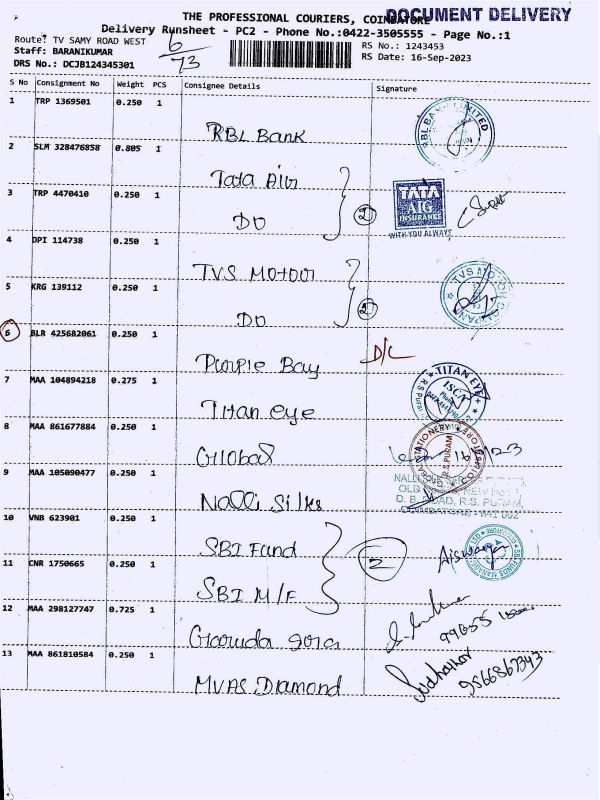 THE PROFESSIONAL COURIERS, COIMBATORE
DOCUMENT DELIVERY
Delivery Runsheet - PC2 - Phone No.:0422-3505555 - Page No.:1
Route: TV SAMY ROAD WEST
6/73
RS No.: 1243453
Staff: BARANIKUMAR
RS Date: 16-Sep-2023
DRS No.: DCJB124345301
S No Consignment No Weight PCS Consignee Details Signature
1 TRP 1369501 0.250 1 RBL Bank
BL BANK LIMITED
2 SLM 328476858 0.805 1 Tata AIG
3 TRP 4470410 0.250 1 DO
TATA
AIG
INSURANCE
WITH YOU ALWAYS
4 DPI 114738 0.250 1 TVS Motoor
5 KRG 139112 0.250 1 DO
TVS MO
6 BLR 425682061 0.250 1 Purple Bay D/C
7 MAA 104894218 0.275 1 Titan eye
TITAN EYE
8 MAA 861677884 0.250 1 Global
STATIONERY
R.S. PURAM
16 23
9 MAA 105090477 0.250 1 Nalli Silks
D. B. ROAD, R.S. PURAM,
COIMBATORE - 641 002
10 VNB 623901 0.250 1 SBI Fund
2 Aiswarya
11 CNR 1750665 0.250 1 SBI M/F
12 MAA 298127747 0.725 1
99655
13 MAA 861810584 0.250 1 MVAS Diamond
Sudhakar
9566867343